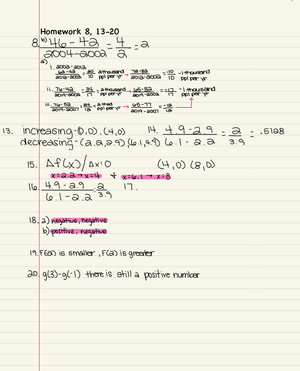 Homework 8, 13-20
8. b) 46-42 / 2004-2002 = 4/2 = 2
a)
i. 2002-2012
13. increasing-(0,0), (4,0) 14. 4.9-2.9 / 6.1-2.2 = 2/3.9 = .5128
decreasing-(2.2,2.9) (6.1,4.9)
15. Δf(x)/Δx=0 (4,0) (8,0)
x=2.2→x=4 & x=6.1→x=8
16. 4.9-2.9 / 6.1-2.2 2/3.9 17.
18. a) negative, negative
b) positive, negative
19. F(a) is smaller, F(2) is greater
20. g(3)-g(-1) there is still a positive number